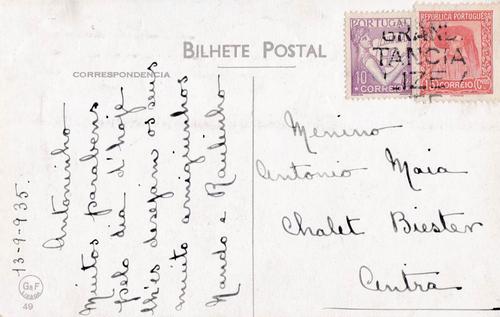 BILHETE POSTAL
CORRESPONDENCIA
PORTUGAL
10
CORREIO
REPUBLICA PORTUGUESA
CORREIO
GRAND
TANCIA
LIZE
13-9-935.
Antoninho
Muitos parabens
pelo dia d'hoje
lh'es desejam os seus
muito amiguinhos
Nando e Raulinho
Menino
Antonio Maia
Chalet Biester
Cintra
G&F
49